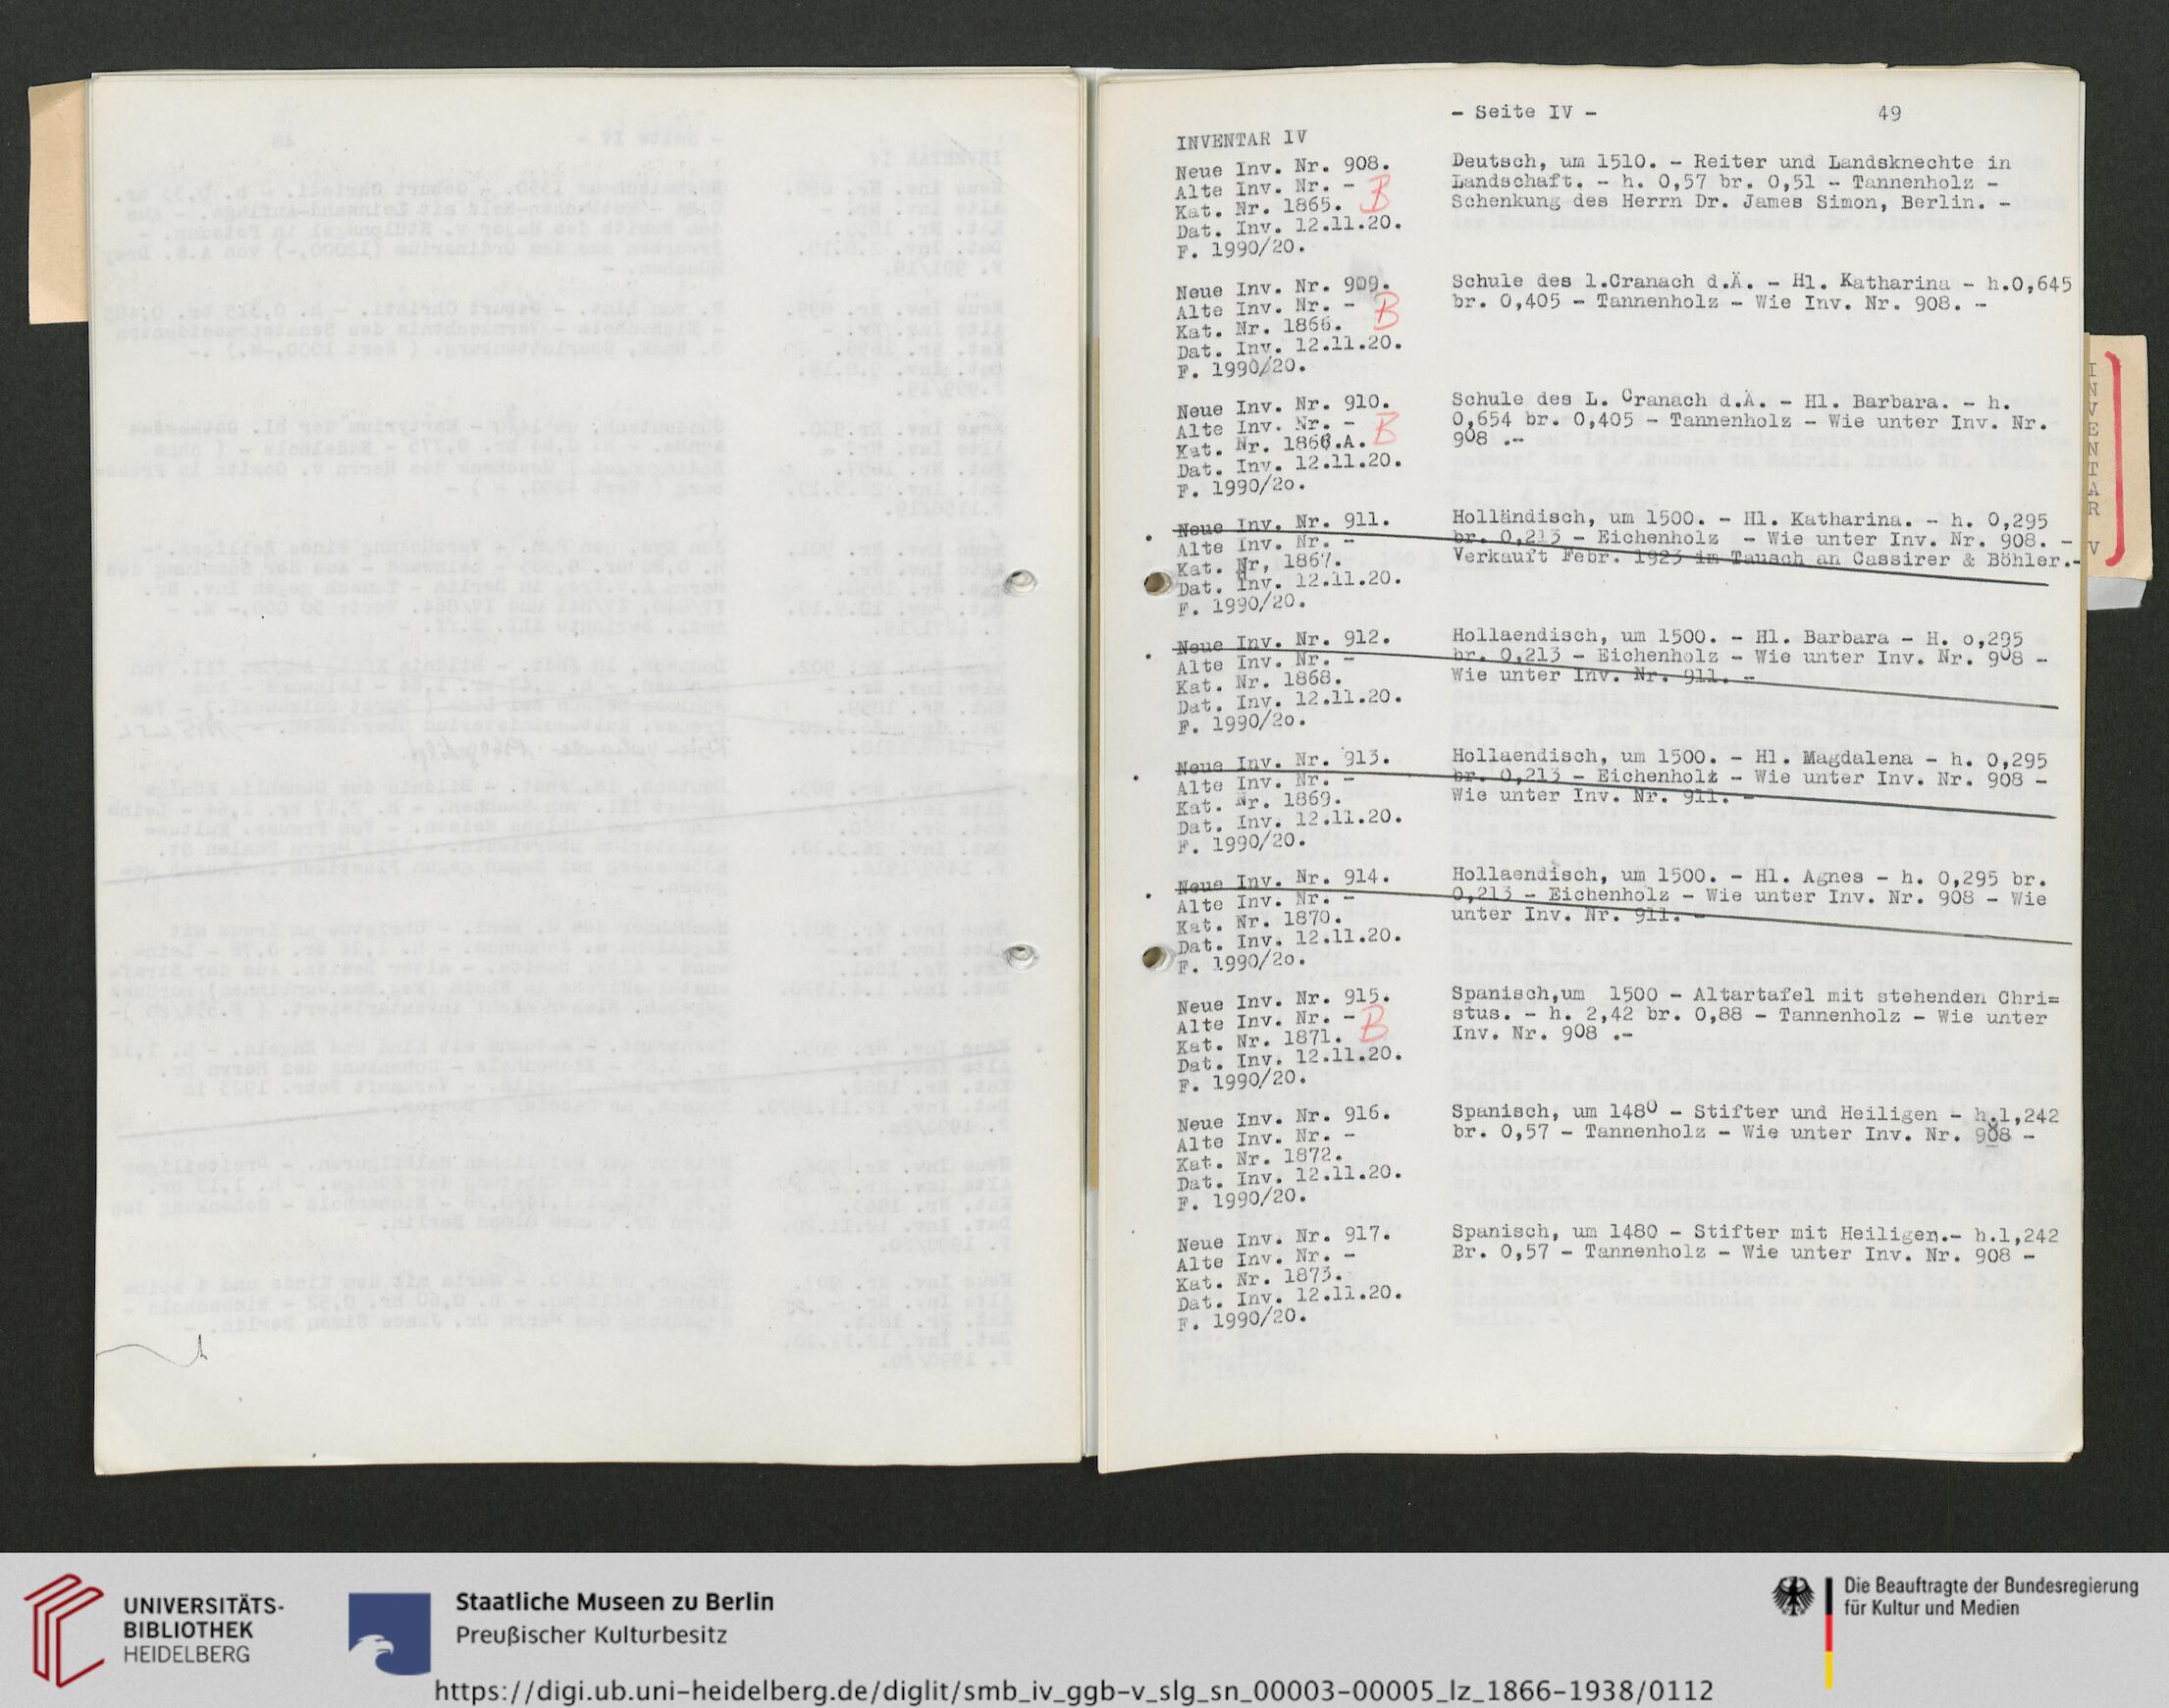 - Seite IV - 49
INVENTAR IV
Neue Inv. Nr. 908.
Alte Inv. Nr. -
Kat. Nr. 1865. B
Dat. Inv. 12.11.20.
F. 1990/20.
Deutsch, um 1510. - Reiter und Landsknechte in
Landschaft. - h. 0,57 br. 0,51 - Tannenholz -
Schenkung des Herrn Dr. James Simon, Berlin. -
Neue Inv. Nr. 909.
Alte Inv. Nr. - B
Kat. Nr. 1866.
Dat. Inv. 12.11.20.
F. 1990/20.
Schule des l.Cranach d.Ä. - Hl. Katharina - h.0,645
br. 0,405 - Tannenholz - Wie Inv. Nr. 908. -
Neue Inv. Nr. 910.
Alte Inv. Nr. - B
Kat. Nr. 1866.A.
Dat. Inv. 12.11.20.
F. 1990/2o.
Schule des L. Cranach d.Ä. - Hl. Barbara. - h.
0,654 br. 0,405 - Tannenholz - Wie unter Inv. Nr.
908 .-
Neue Inv. Nr. 911.
Alte Inv. Nr. -
Kat. Nr, 1867.
Dat. Inv. 12.11.20.
F. 1990/20.
Holländisch, um 1500. - Hl. Katharina. - h. 0,295
br. 0,213 - Eichenholz - Wie unter Inv. Nr. 908. -
Verkauft Febr. 1923 im Tausch an Cassirer & Böhler.-
Neue Inv. Nr. 912.
Alte Inv. Nr. -
Kat. Nr. 1868.
Dat. Inv. 12.11.20.
F. 1990/2o.
Hollaendisch, um 1500. - Hl. Barbara - H. o,295
br. 0,213 - Eichenholz - Wie unter Inv. Nr. 908 -
Wie unter Inv. Nr. 911. -
Neue Inv. Nr. 913.
Alte Inv. Nr. -
Kat. Nr. 1869.
Dat. Inv. 12.11.20.
F. 1990/20.
Hollaendisch, um 1500. - Hl. Magdalena - h. 0,295
br. 0,213 - Eichenholz - Wie unter Inv. Nr. 908 -
Wie unter Inv. Nr. 911. -
Neue Inv. Nr. 914.
Alte Inv. Nr. -
Kat. Nr. 1870.
Dat. Inv. 12.11.20.
F. 1990/2o.
Hollaendisch, um 1500. - Hl. Agnes - h. 0,295 br.
0,213 - Eichenholz - Wie unter Inv. Nr. 908 - Wie
unter Inv. Nr. 911. -
Neue Inv. Nr. 915.
Alte Inv. Nr. - B
Kat. Nr. 1871.
Dat. Inv. 12.11.20.
F. 1990/20.
Spanisch,um 1500 - Altartafel mit stehenden Chri=
stus. - h. 2,42 br. 0,88 - Tannenholz - Wie unter
Inv. Nr. 908 .-
Neue Inv. Nr. 916.
Alte Inv. Nr. -
Kat. Nr. 1872.
Dat. Inv. 12.11.20.
F. 1990/20.
Spanisch, um 1480 - Stifter und Heiligen - h.1,242
br. 0,57 - Tannenholz - Wie unter Inv. Nr. 908 -
Neue Inv. Nr. 917.
Alte Inv. Nr. -
Kat. Nr. 1873.
Dat. Inv. 12.11.20.
F. 1990/20.
Spanisch, um 1480 - Stifter mit Heiligen.- h.1,242
Br. 0,57 - Tannenholz - Wie unter Inv. Nr. 908 -
INVENTAR V
UNIVERSITÄTS-
BIBLIOTHEK
HEIDELBERG
Staatliche Museen zu Berlin
Preußischer Kulturbesitz
Die Beauftragte der Bundesregierung
für Kultur und Medien
https://digi.ub.uni-heidelberg.de/diglit/smb_iv_ggb-v_slg_sn_00003-00005_lz_1866-1938/0112